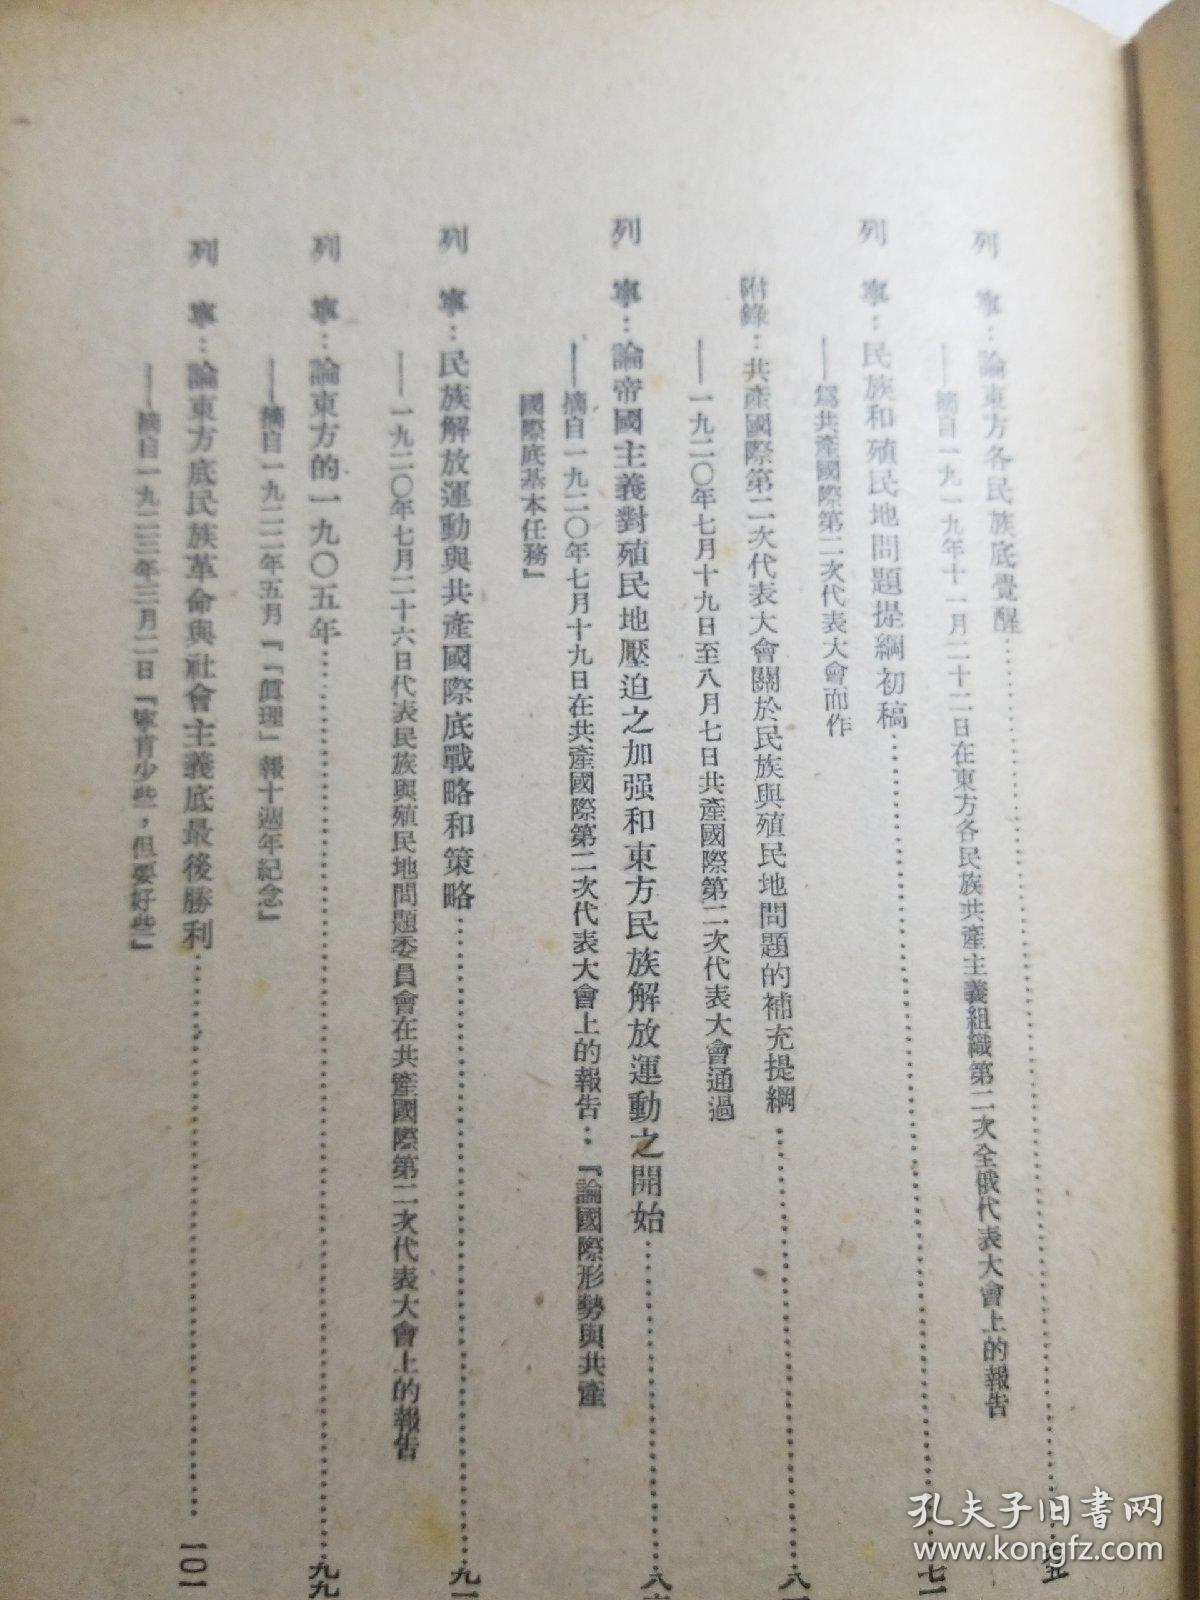 列　寧：論東方各民族底覺醒……五
——摘自一九一九年十一月二十二日在東方各民族共產主義組織第二次全俄代表大會上的報告
列　寧：民族和殖民地問題提綱初稿……七一
——爲共產國際第二次代表大會而作
附錄：共產國際第二次代表大會關於民族與殖民地問題的補充提綱……八
——一九二〇年七月十九日至八月七日共產國際第二次代表大會通過
列　寧：論帝國主義對殖民地壓迫之加强和東方民族解放運動之開始……八
——摘自一九二〇年七月十九日在共產國際第二次代表大會上的報告：『論國際形勢與共產
國際底基本任務』
列　寧：民族解放運動與共產國際底戰略和策略……九一
——一九二〇年七月二十六日代表民族與殖民地問題委員會在共產國際第二次代表大會上的報告
列　寧：論東方的一九〇五年……九九
——摘自一九二二年五月『「眞理」報十週年紀念』
列　寧：論東方底民族革命與社會主義底最後勝利……一〇一
——摘自一九二三年三月二日『寧肯少些，但要好些』
孔夫子旧書网
www.kongfz.com